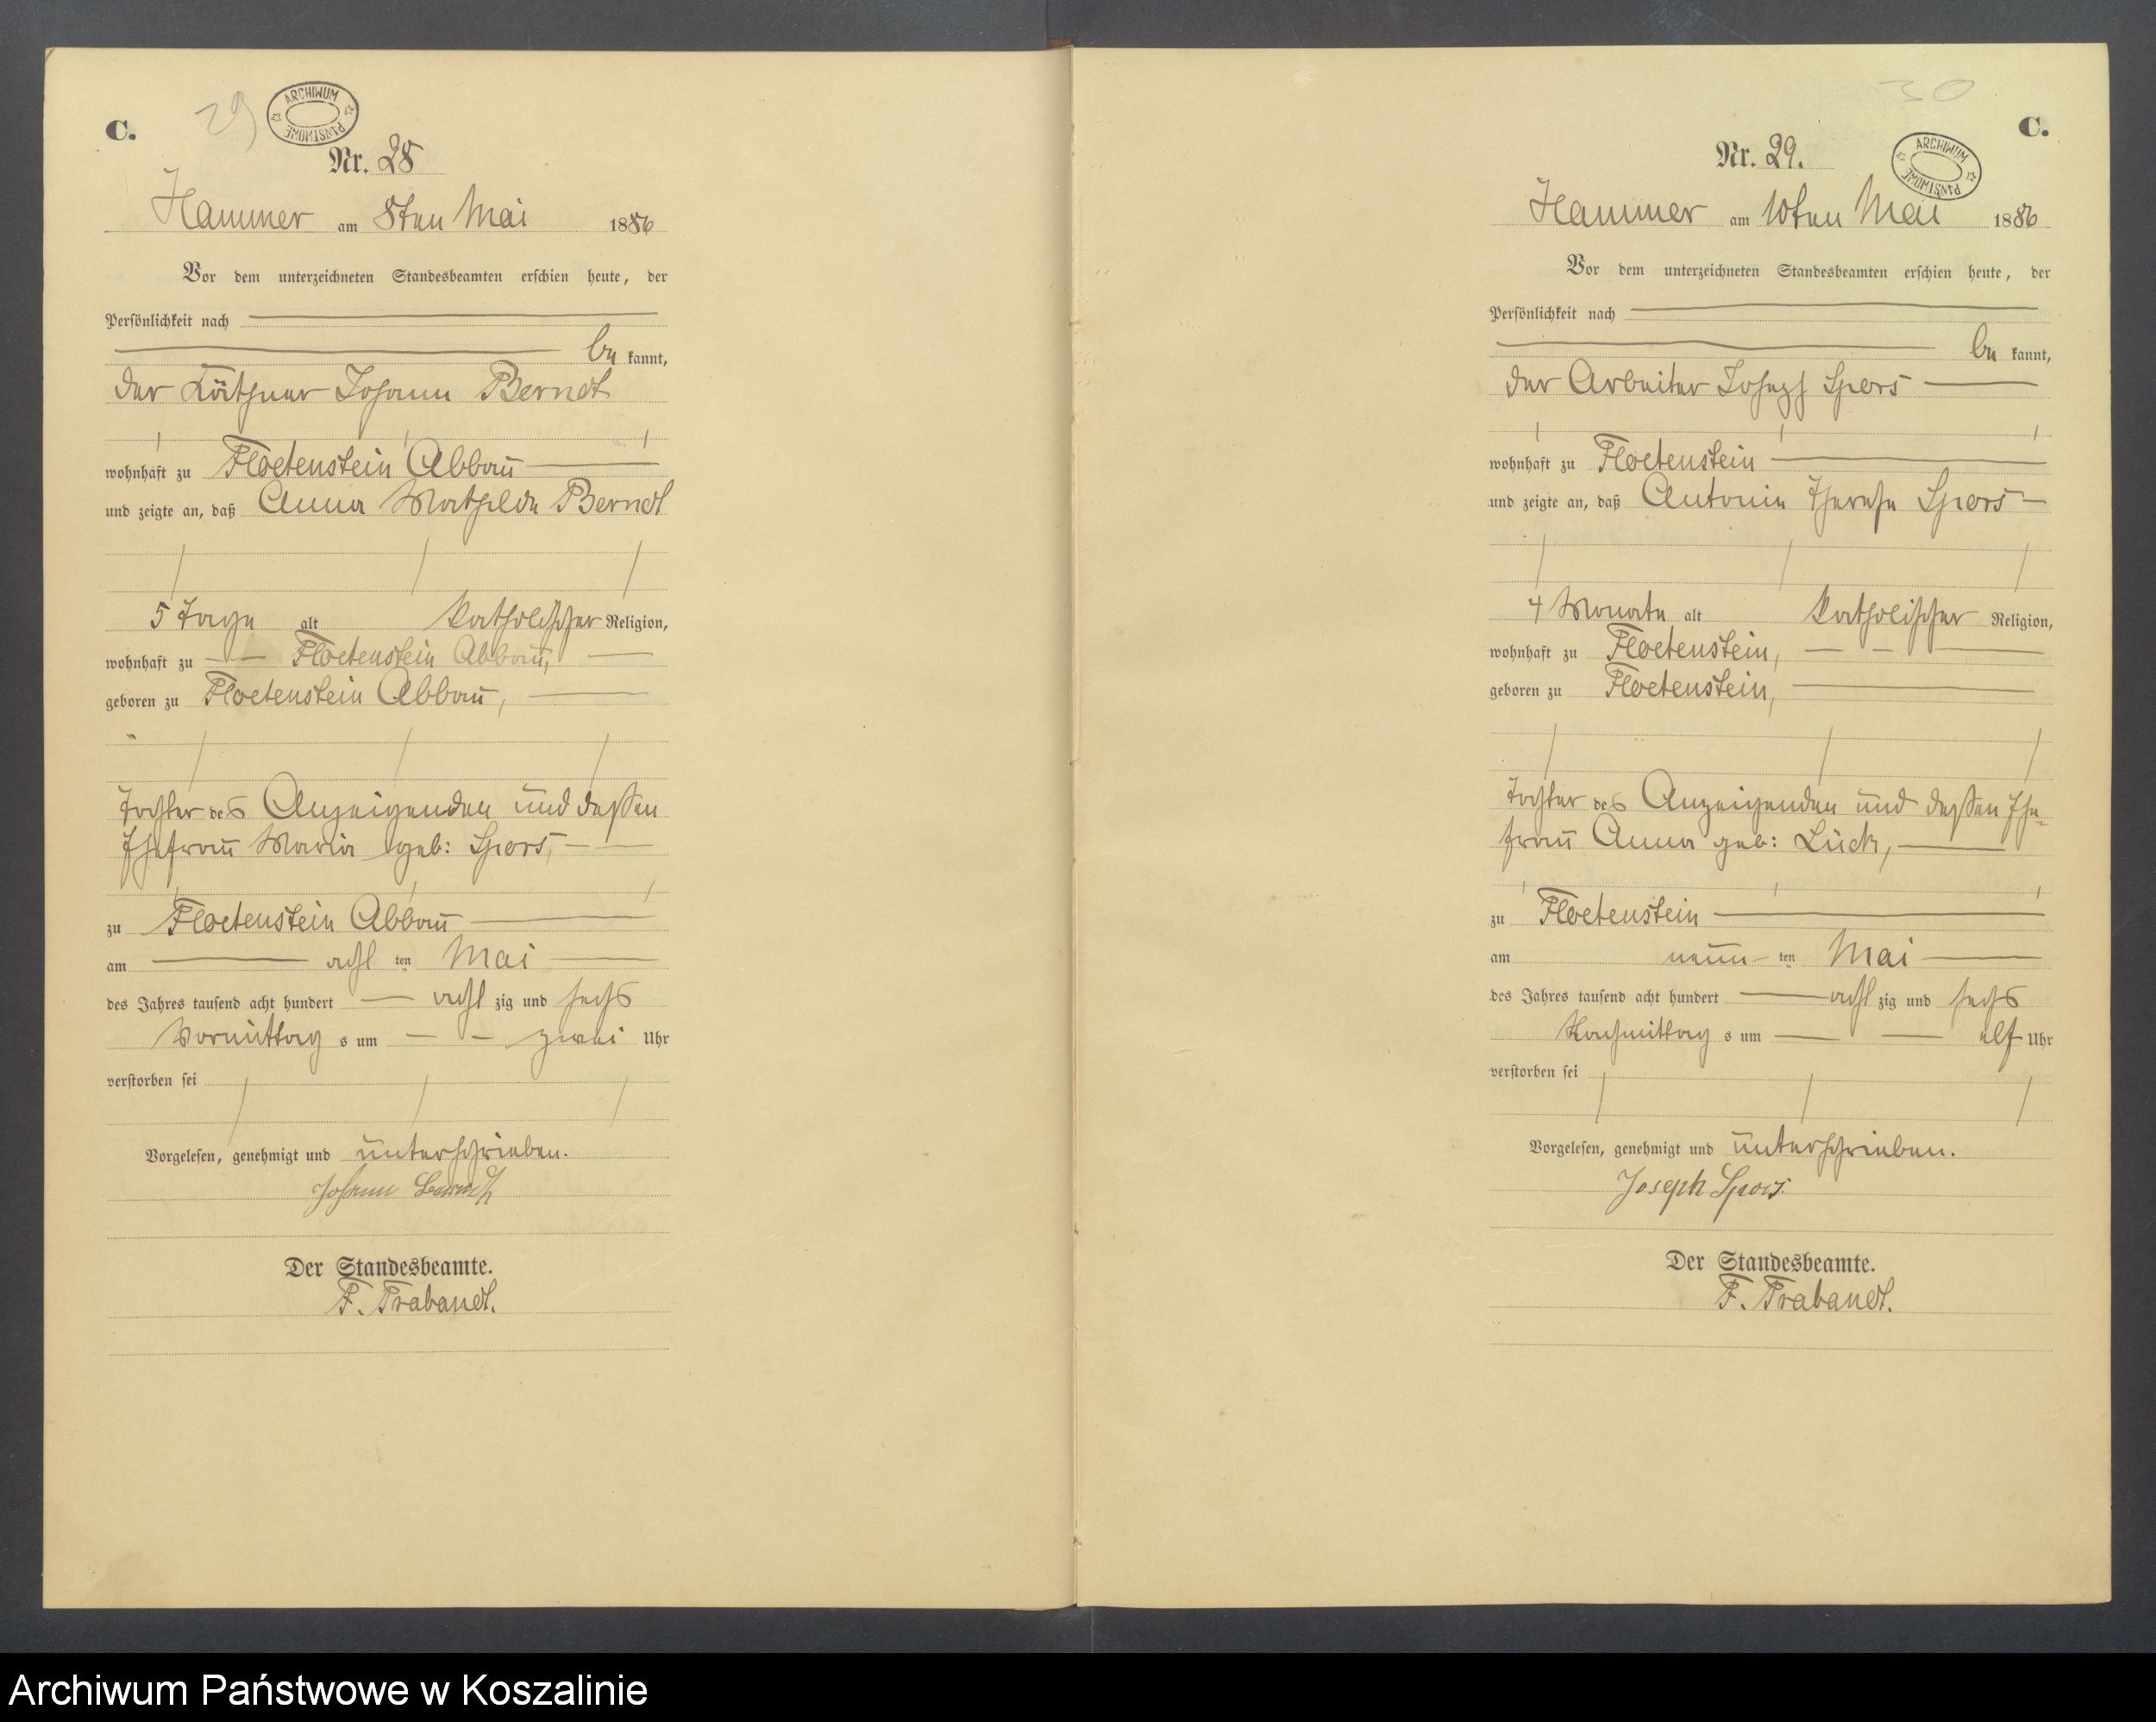 29
ARCHIWUM PAŃSTWOWE
C.
Nr. 28
Hammer am 8ten Mai 1886
Vor dem unterzeichneten Standesbeamten erschien heute, der
Persönlichkeit nach
be kannt,
der Käthner Johann Berndt
wohnhaft zu Floetenstein Abbau
und zeigte an, daß Anna Mathilde Berndt
5 Tage alt katholischer Religion,
wohnhaft zu Floetenstein Abbau,
geboren zu Floetenstein Abbau,
Tochter des Anzeigenden und dessen
Ehefrau Maria geb: Spors,
zu Floetenstein Abbau
am acht ten Mai
des Jahres tausend acht hundert acht zig und sechs
Vormittag s um zwei Uhr
verstorben sei
Vorgelesen, genehmigt und unterschrieben.
Johann Berndt
Der Standesbeamte.
F. Trabandt.
30
C.
Nr. 29.
ARCHIWUM PAŃSTWOWE
Hammer am 10ten Mai 1886
Vor dem unterzeichneten Standesbeamten erschien heute, der
Persönlichkeit nach
be kannt,
der Arbeiter Joseph Spors
wohnhaft zu Floetenstein
und zeigte an, daß Antonie Therese Spors
4 Monate alt katholischer Religion,
wohnhaft zu Floetenstein,
geboren zu Floetenstein,
Tochter des Anzeigenden und dessen Ehe=
frau Anna geb: Lück,
zu Floetenstein
am neun ten Mai
des Jahres tausend acht hundert acht zig und sechs
Nachmittag s um elf Uhr
verstorben sei
Vorgelesen, genehmigt und unterschrieben.
Joseph Spors.
Der Standesbeamte.
F. Trabandt.
Archiwum Państwowe w Koszalinie